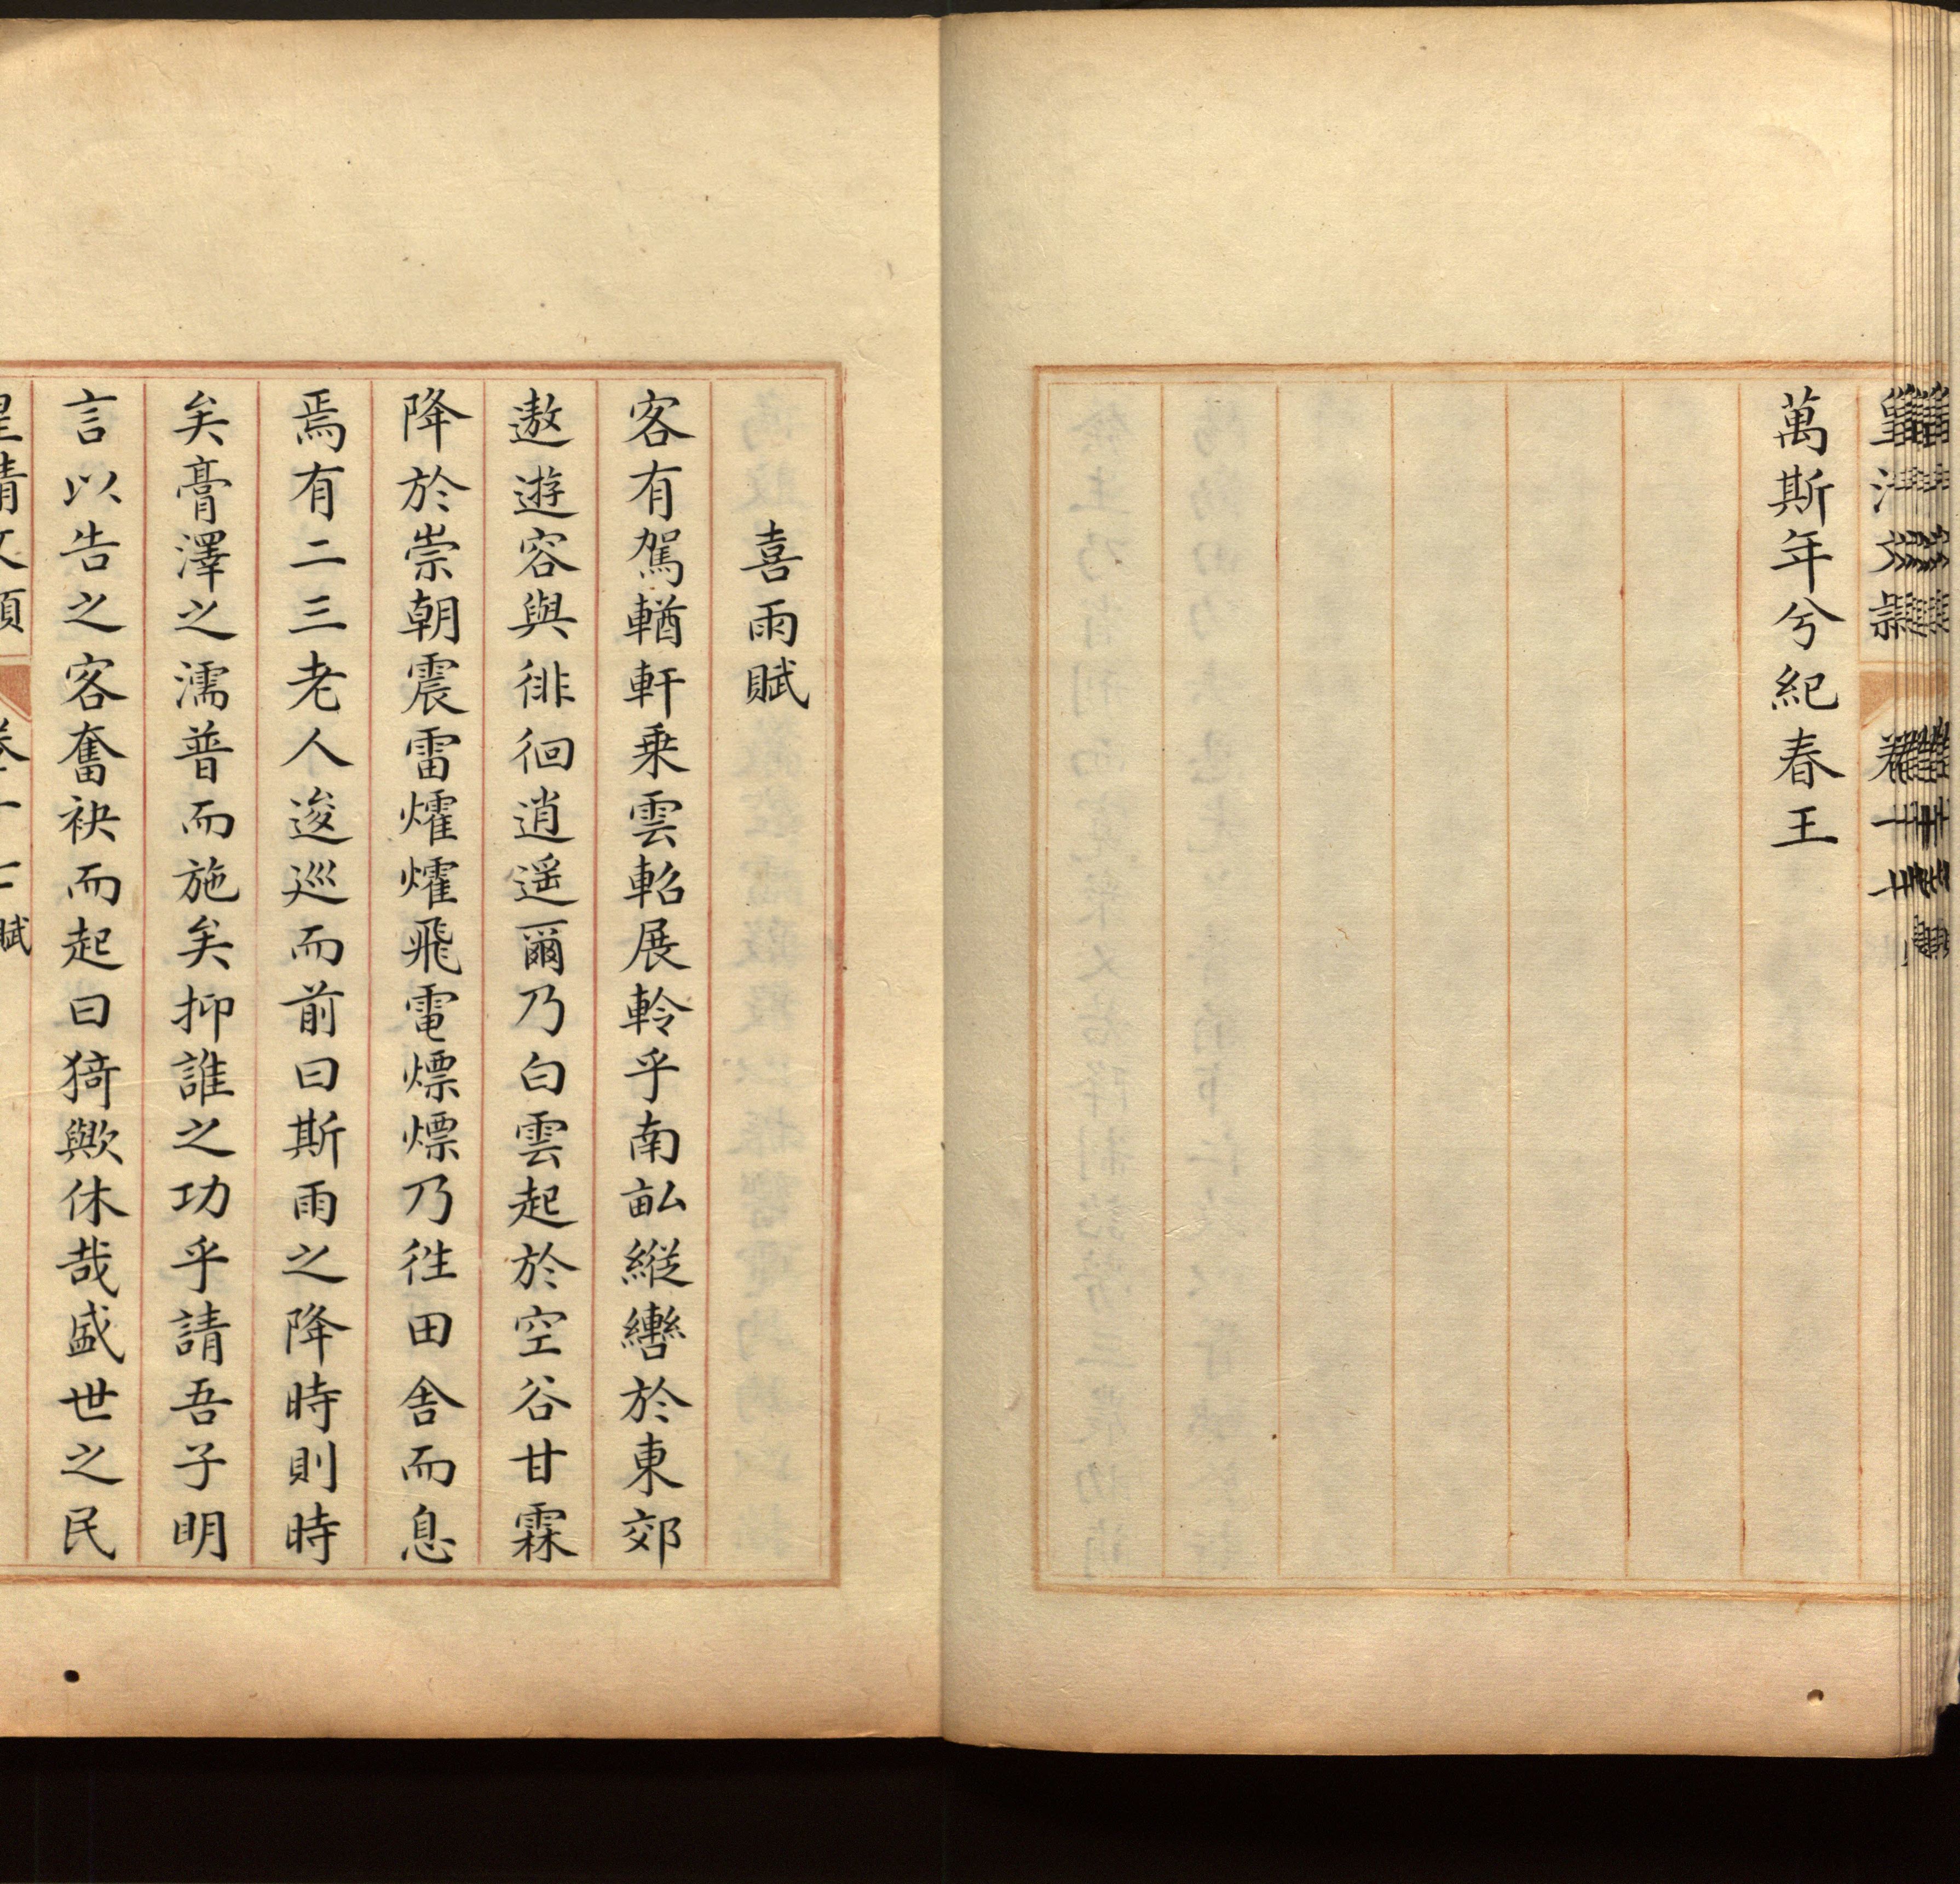 萬斯年兮紀春王
喜雨賦
客有駕輶軒乗雲軺展軨乎南畝縱轡於東郊
遨遊容與徘徊逍遥爾乃白雲起於空谷甘霖
降於崇朝震雷爠爠飛電熛熛乃徃田舎而息
焉有二三老人逡巡而前曰斯雨之降時則時
矣膏澤之濡普而施矣抑誰之功乎請吾子明
言以告之客奮袂而起曰猗歟休哉盛世之民